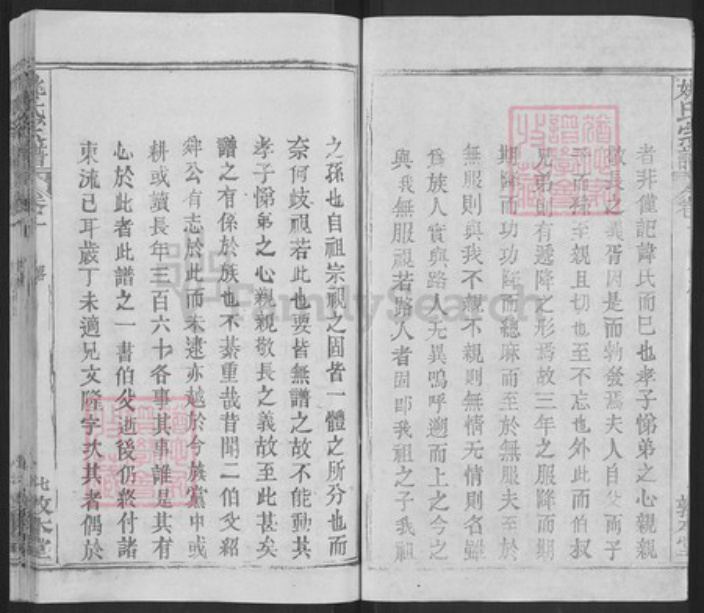 姚氏宗譜
者非僅記諱氏而已也孝子悌弟之心親親
敬長之義胥因是而勃發焉夫人自父而子
子而孫至親且切也至不忘也外此而伯叔
兄弟則有遞降之形焉故三年之服降而期
期降而功功降而緦麻而至於無服夫至於
無服則與我不親不親則無情无情則名雖
為族人實與路人无異嗚呼遡而上之今之
與我無服視若路人者固即我祖之子我祖
敦本堂
之孫也自祖宗視之固皆一體之所分也而
奈何歧視若此也要皆無譜之故不能動其
孝子悌弟之心親親敬長之義故至此甚矣
譜之有係於族也不綦重哉昔聞二伯父紹
舜公有志於此而未逮亦越於今族黨中或
耕或讀長年三百六十各事其事誰是其有
心於此者此譜之一書伯父逝後仍終付諸
東流已耳歲丁未適兄文隆字次其者偶於
敦本堂
FamilySearch